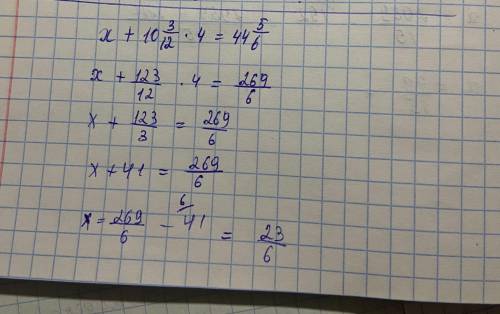 x + 10 3/12 · 4 = 44 5/6
x + 123/12 · 4 = 269/6
x + 123/3 = 269/6
x + 41 = 269/6
x = 269/6 - 41 6/ = 23/6